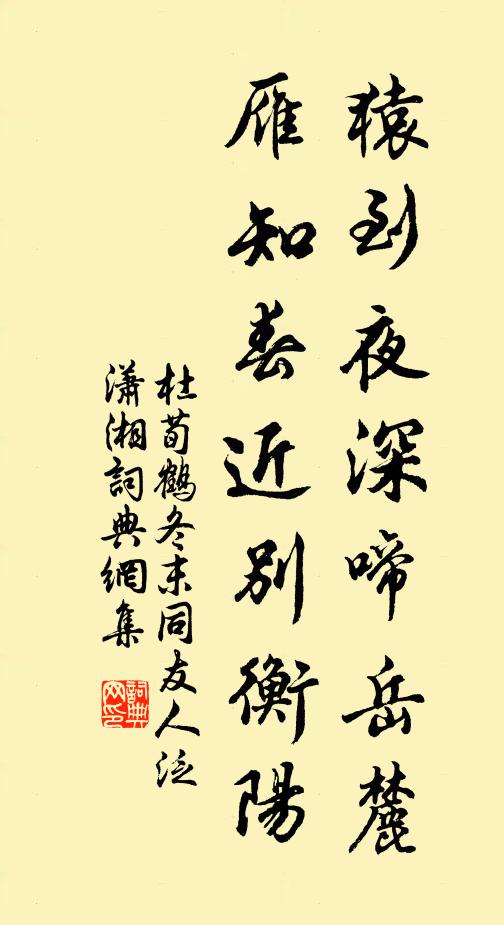 猿到夜深啼岳麓
雁知春近別衡陽
杜荀鶴冬末同友人泛
瀟湘詞典網集
詞典
网印